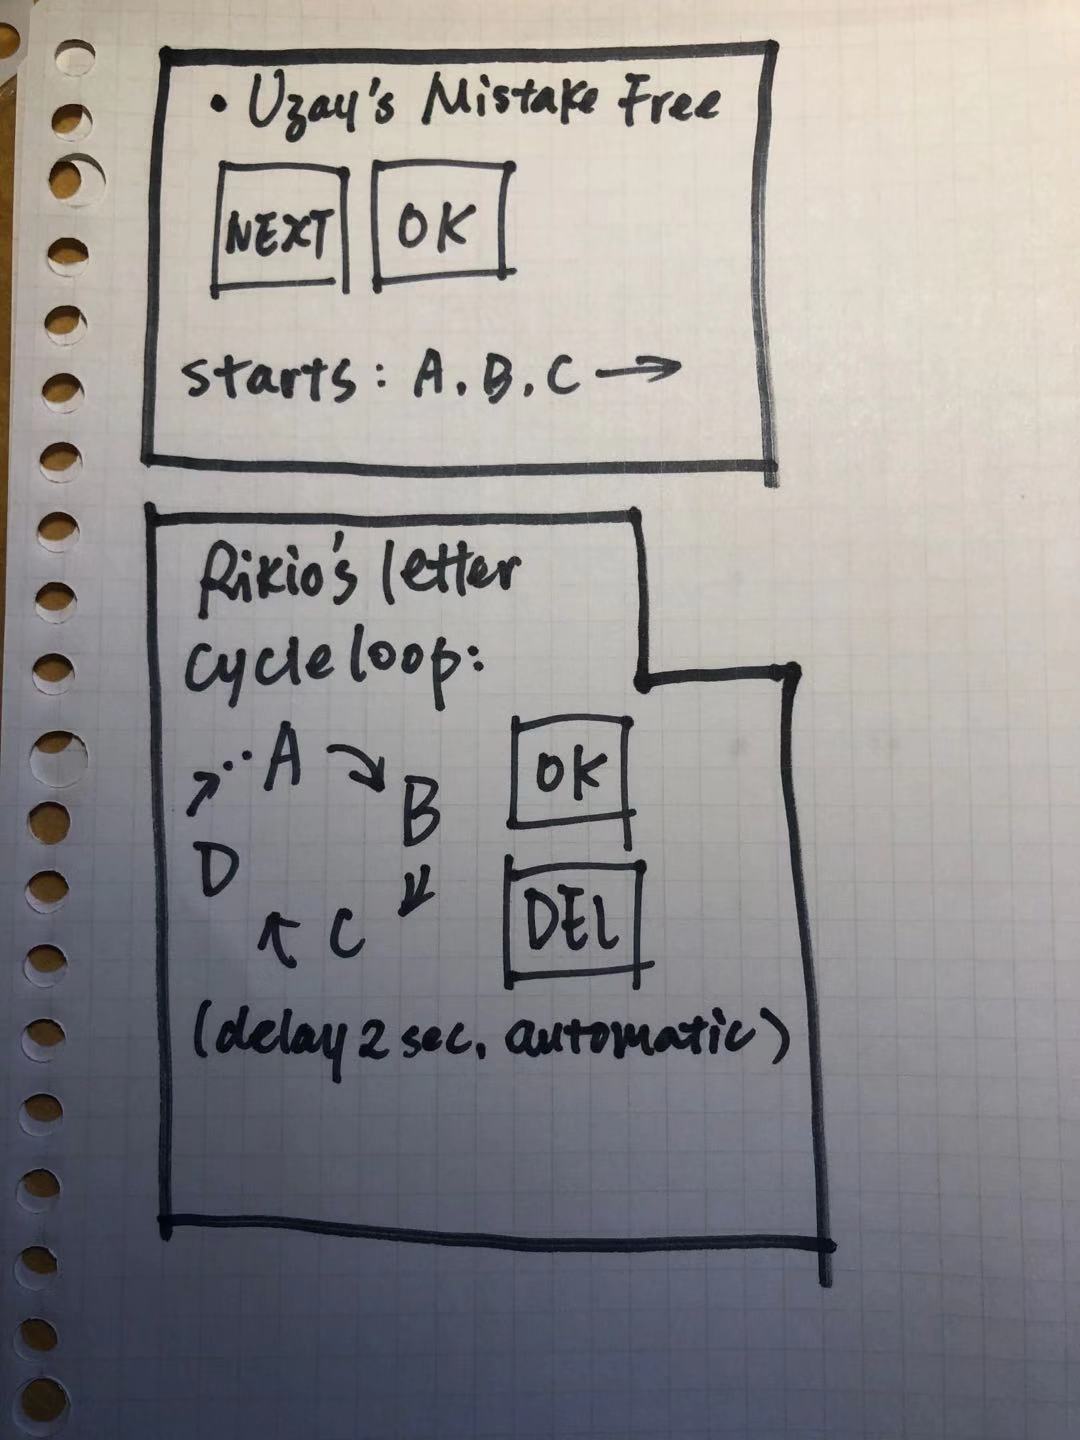 • Uzay's Mistake Free
NEXT OK
starts: A. B. C →
Rikio's letter
cycle loop:
A
B
C
D
OK
DEL
(delay 2 sec. automatic)